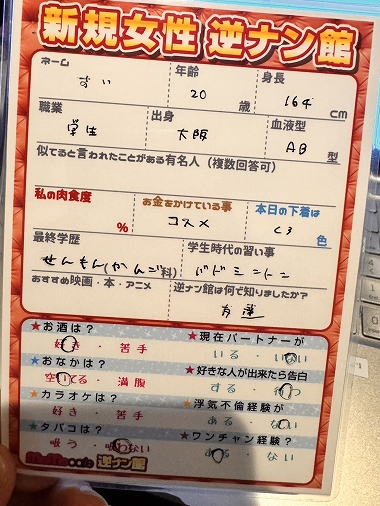 新規女性 逆ナン館
ネーム 年齢 身長
すい 20 歳 164 cm
職業 出身 血液型
学生 大阪 AB 型
似てると言われたことがある有名人（複数回答可）
私の肉食度 お金をかけている事 本日の下着は
% コスメ くろ 色
最終学歴 学生時代の習い事
せんもん(かんご科) バドミントン
おすすめ映画・本・アニメ 逆ナン館は何で知りましたか？
友達
★お酒は？ ★現在パートナーが
好き・苦手 いる・いない
★おなかは？ ★好きな人が出来たら告白
空いてる・満腹 する・待つ
★カラオケは？ ★浮気不倫経験が
好き・苦手 ある・ない
★タバコは？ ★ワンチャン経験が？
吸う・吸わない ある・ない
逆ナン館